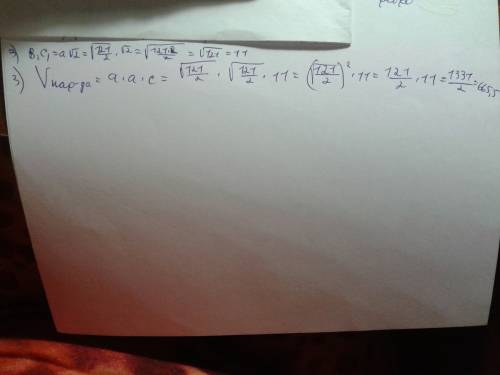 2) B₁C₁ = a√2 = √(121/2) · √2 = √(121·2/2) = √121 = 11
3) Vпар-да = a · a · c = √(121/2) · √(121/2) · 11 = (√(121/2))² · 11 = 121/2 · 11 = 1331/2 = 665,5